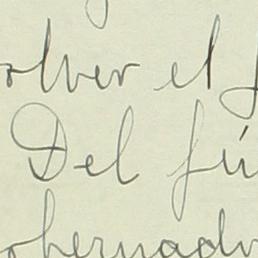 olver el f
Del fú
obernado